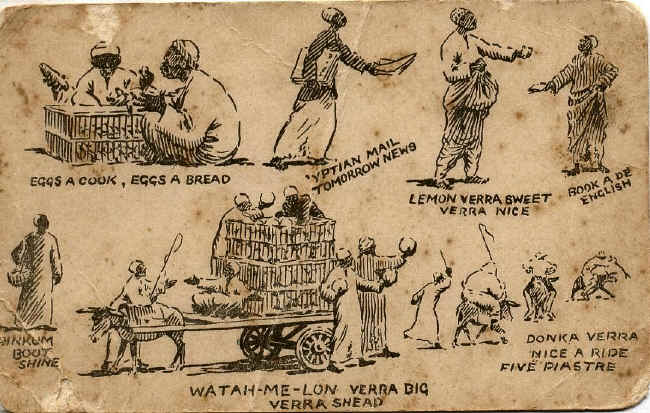 EGGS A COOK, EGGS A BREAD
'YPTIAN MAIL
TOMORROW NEWS
LEMON VERRA SWEET
VERRA NICE
BOOK A DE
ENGLISH
BOOT
SHINE
WATAH-ME-LON VERRA BIG
VERRA SHEAD
DONKA VERRA
NICE A RIDE
FIVE PIASTRE